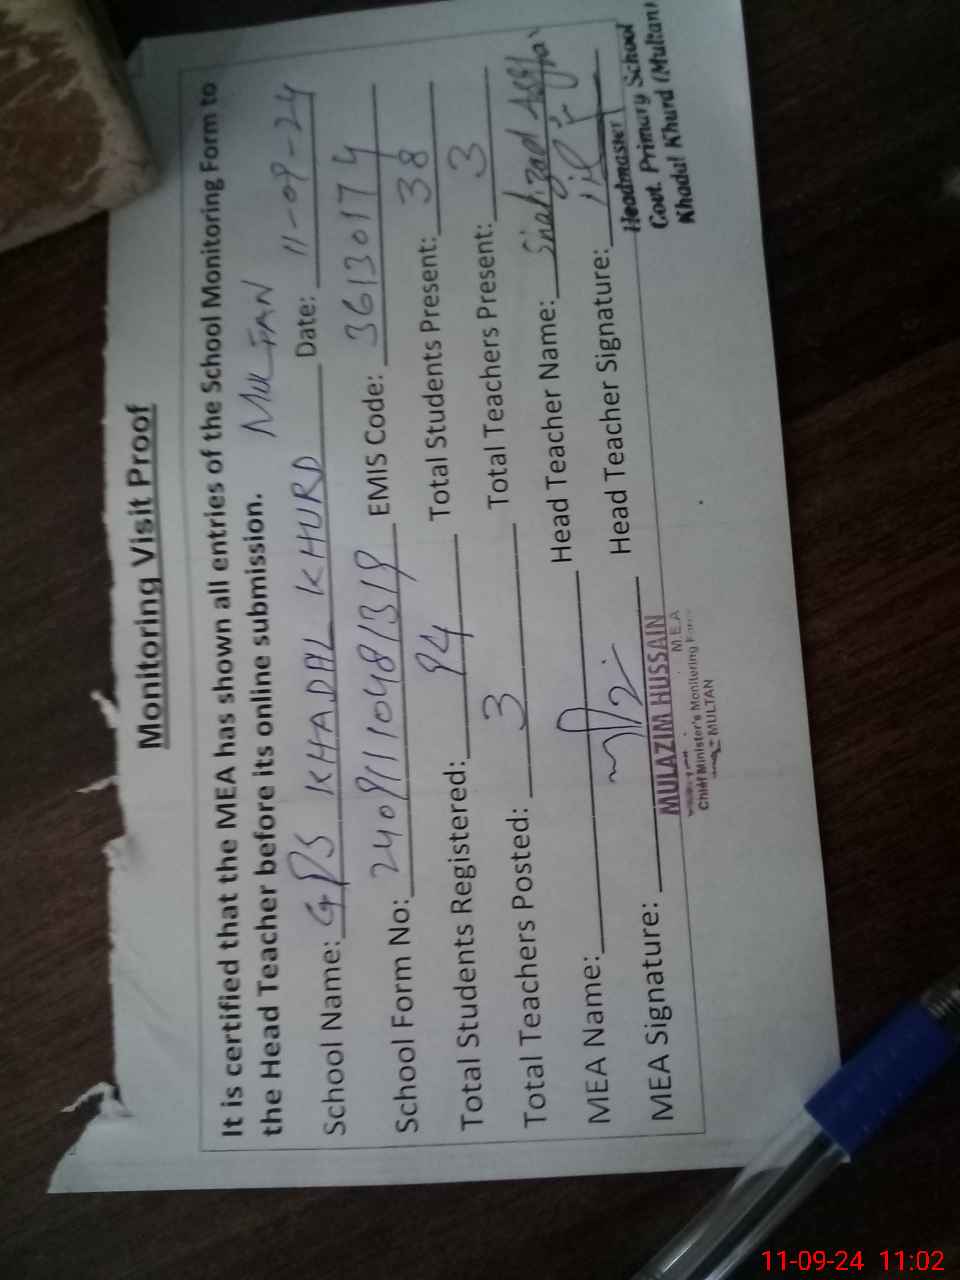 Monitoring Visit Proof
It is certified that the MEA has shown all entries of the School Monitoring Form to
the Head Teacher before its online submission. MULTAN
School Name: GPS KHADAL KHURD Date: 11-09-24
School Form No: 24091110481319 EMIS Code: 36130174
Total Students Registered: 94 Total Students Present: 38
Total Teachers Posted: 3 Total Teachers Present: 3
MEA Name: Head Teacher Name: Shahzad Asghar
MEA Signature: Head Teacher Signature:
MULAZIM HUSSAIN
M.E.A
Chief Minister's Monitoring Force
MULTAN
Headmaster
Govt. Primary School
Khadal Khurd (Multan)
11-09-24 11:02